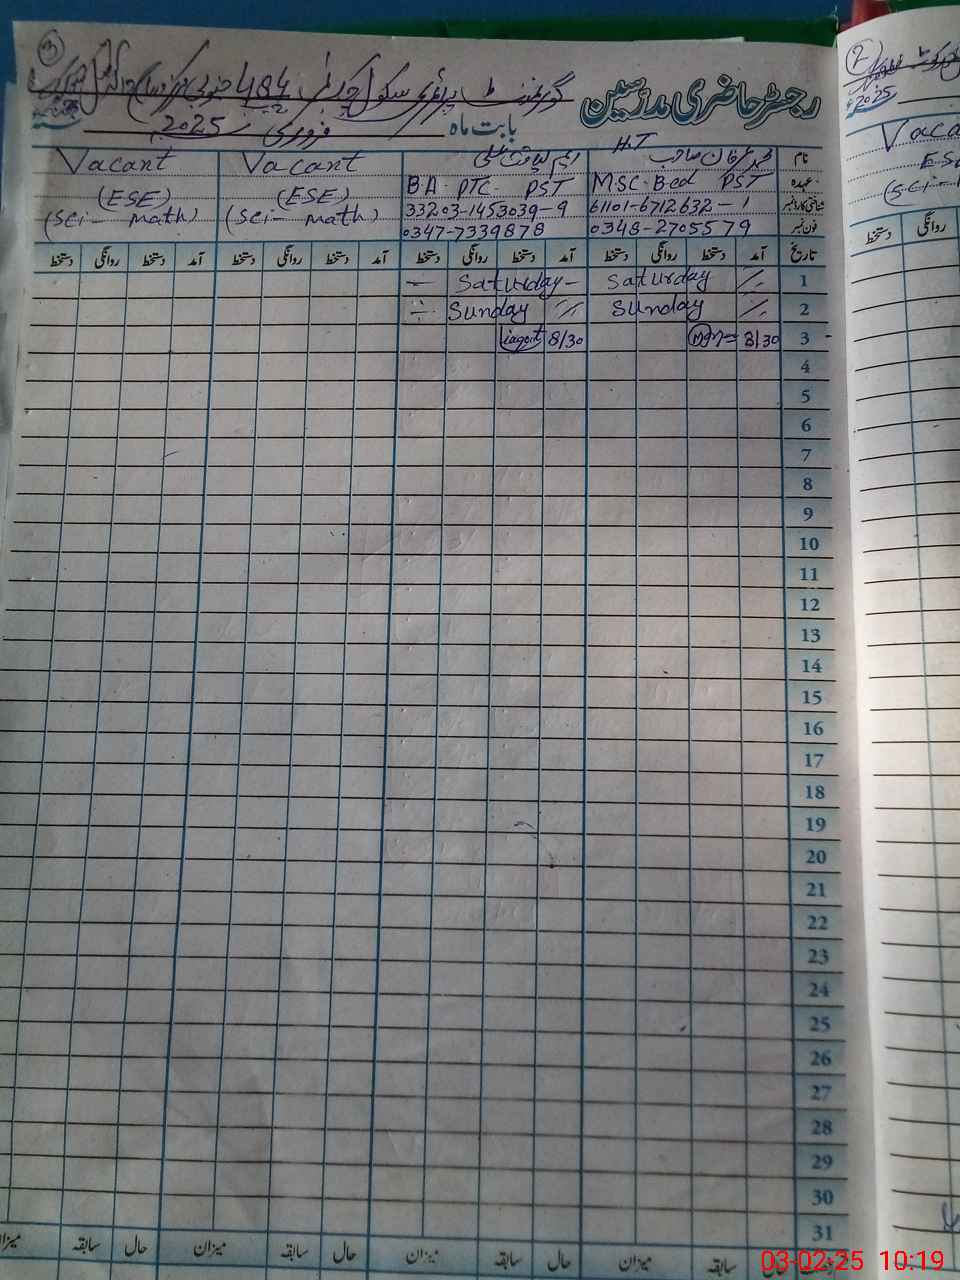 رجسٹر حاضری مدرسین
گورنمنٹ پرائمری سکول 484
بابت ماہ فروری 2025
نام
H.T
Vacant Vacant
عہدہ MSC. Bed PST BA. PTC. PST (ESE) (ESE)
شناختی کارڈ نمبر 61101-6712632-1 33203-1453039-9 (Sci - math) (Sci - math)
فون نمبر 0348-2705579 0347-7339878
تاریخ آمد دستخط روانگی دستخط آمد دستخط روانگی دستخط آمد دستخط روانگی دستخط آمد دستخط روانگی دستخط
1 Saturday Saturday
2 Sunday Sunday
3 8/30 8/30
4
5
6
7
8
9
10
11
12
13
14
15
16
17
18
19
20
21
22
23
24
25
26
27
28
29
30
31
سابقہ میزان حال سابقہ میزان حال سابقہ میزان حال سابقہ میزان
2025
روانگی دستخط
03-02-25 10:19